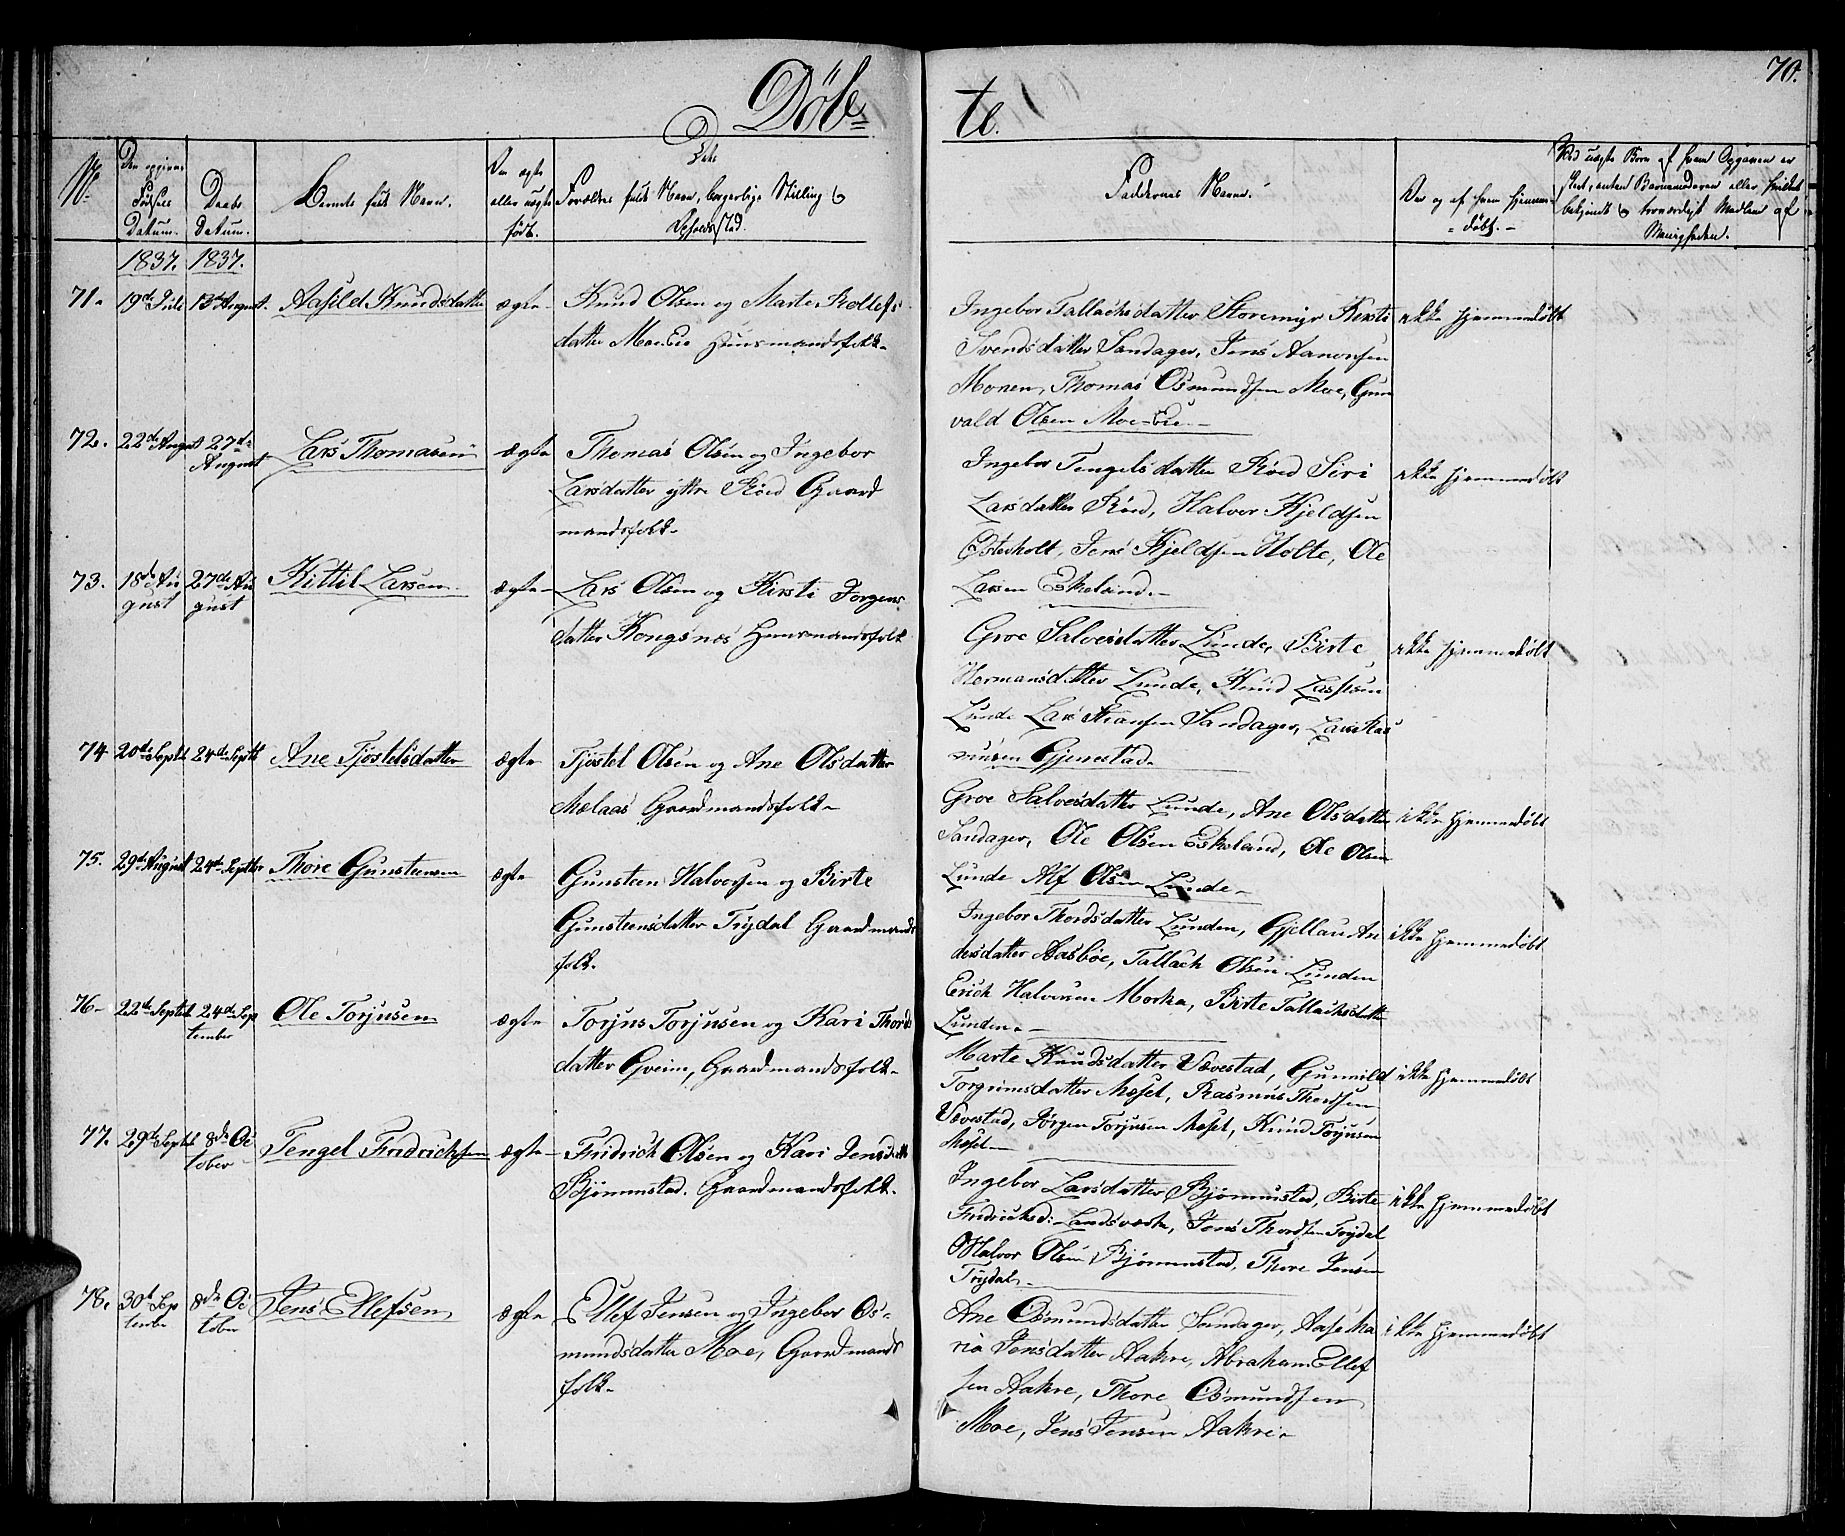 Döbte.
70.
No.
Den opgivne Födsels Datum.
Daabs Datum.
Barnets fulde Navn.
Om ægte eller uægte født.
Dets Forældres fulde Navn, borgerlige Stilling og Opholdsstad.
Faddernes Navne.
Om og af hvem hjemmedöbt.
Ved uægte Børn af hvem Opgaven er skeet, enten Barnemoderen eller hvilket bekjendt og troværdigt Medlem af Menigheden.
1837. 1837.
71. 19de Juli 13de August. Aasild Knudsdatter ægte Knud Olsen og Marte Rollefs
datter Moe Huusmandsfolk
Ingebor Tallachsdatter Storemyr Kirsti
Svendsdatter Sandager, Jens Aanonsen
Monen, Thomas Osmundsen Moe, Gun
vald Olsen Moe
ikke hjemmedøbt
72. 22de August 27de August Lars Thomasen ægte Thomas Olsen og Ingebor
Larsdatter yttre Röed Gaard
mandsfolk
Ingebor Tengelsdatter Röed Siri
Larsdatter Röed, Halvor Kjeldsen
Østerholt, Jens Kjeldsen Holte, Ole
Larsen Eskeland
ikke hjemmedøbt
73. 18de August 27de August Kittil Larsen ægte Lars Olsen og Kirsti Jorgens
datter Kongsnes Huusmandsfolk
Groe Salvesdatter Lunde, Birte
Hermansdatter Lunde, Knud Lassesen
Lunde Lars Sandager, Lars Ras
musen Gjerestad
ikke hjemmedøbt
74 20de Septb 24de Septb Ane Tjöstelsdatter ægte Tjöstel Olsen og Ane Olsdatter
Melaas Gaardmandsfolk
Groe Salvesdatter Lunde, Ane Olsdatter
Sandager, Ole Olsen Eskeland, Ole Olsen
Lunde Alf Olsen Lunde
ikke hjemmedøbt
75. 29de August 24de Septbr Thore Gunsteensen ægte Gunsteen Halvorsen og Birte
Gunsteensdatter Trydal Gaardmands
folk.
Ingebor Thordsdatter Lunden, Gjellau An
dersdatter Aasböe, Tallach Olsen Lunden
Erich Halvorsen Morka, Birte Tallachsdatter
Lunden
ikke hjemmedøbt
76 22de Septbr 24de September Ole Torjusen ægte Torjus Torjusen og Kari Thords
datter Gveim, Gaardmandsfolk
Marte Knudsdatter Vævestad, Gunnild
Torgrimsdatter Mosel, Rasmus Thordsen
Vævestad, Jørgen Torjusen Mosel, Knud Torjusen
Mosel
ikke hjemmedøbt
77. 29de Septbr 8de October Tengel Fridrichsen ægte Fridrich Olsen og Kari Jensdatter
Bjömmestad. Gaardmandsfolk.
Ingebor Larsdatter Bjömmestad, Birte
Fridrichsd: Landsverk, Jens Thordsen Trydal
Halvor Olsen Bjömmestad, Thore Jensen
Trydal
ikke hjemmedøbt
78. 30de September 8de October Jens Ellefsen ægte Ellef Jensen og Ingebor Os
mundsdatter Moe, Gaardmands
folk
Ane Osmundsdatter Sandager, Aase Ma
ria Jensdatter Aakre, Abraham Ellef
sen Aakre, Thore Osmundsen
Moe, Jens Jensen Aakre
ikke hjemmedøbt